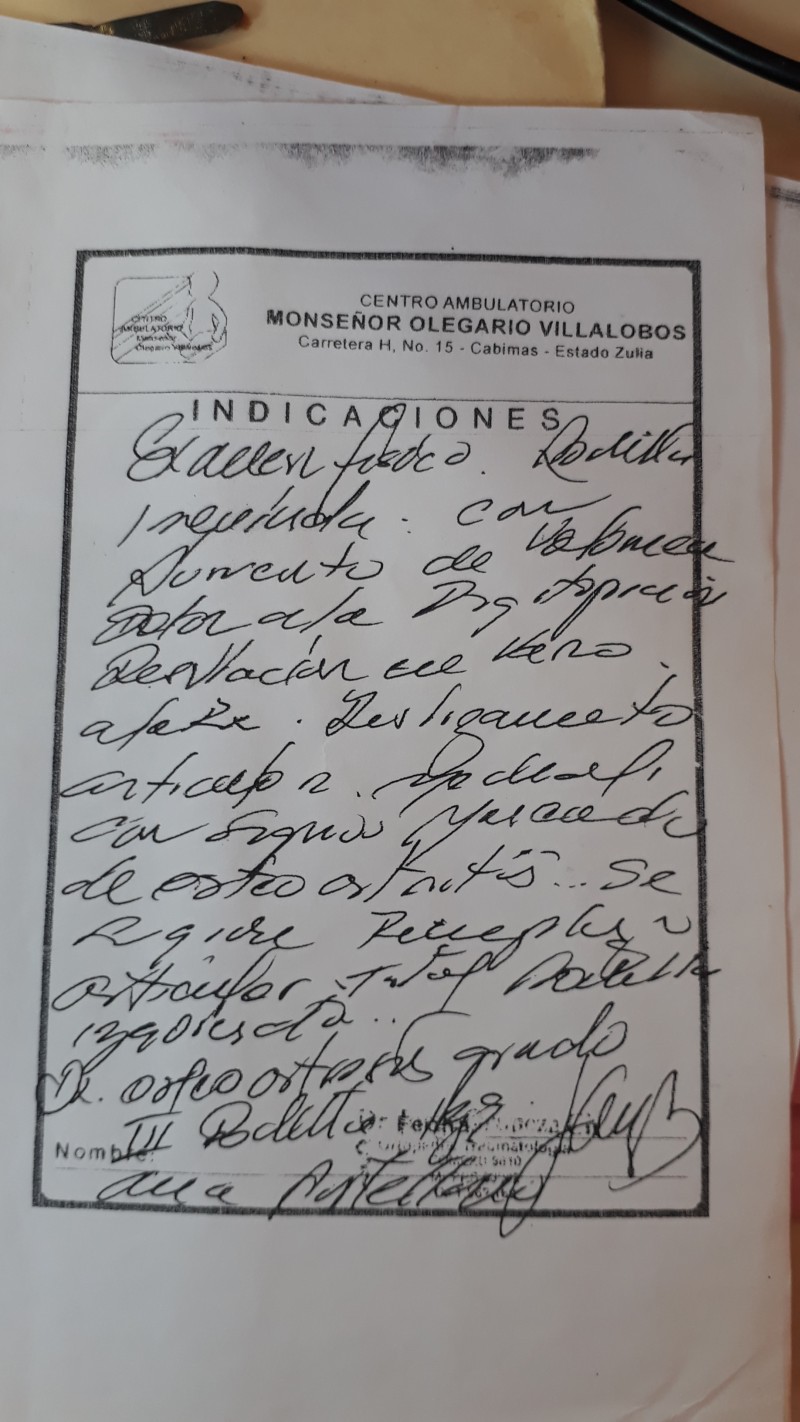 CENTRO
AMBULATORIO
Monseñor
Olegario Villalobos
CENTRO AMBULATORIO
MONSEÑOR OLEGARIO VILLALOBOS
Carretera H, No. 15 - Cabimas - Estado Zulia
INDICACIONES
Examen físico. Rodilla
Izquierda. con
Aumento de Volumen
Dolor a la Digitopresión
Desviación en Varo.
articular.
con Signos Marcado
de osteoartritis... Se
sugiere Reemplazo
articular Total Rodilla
izquierda..
Dx. osteoartrosis grado
III Rodilla Izq
Nombre:
Ana